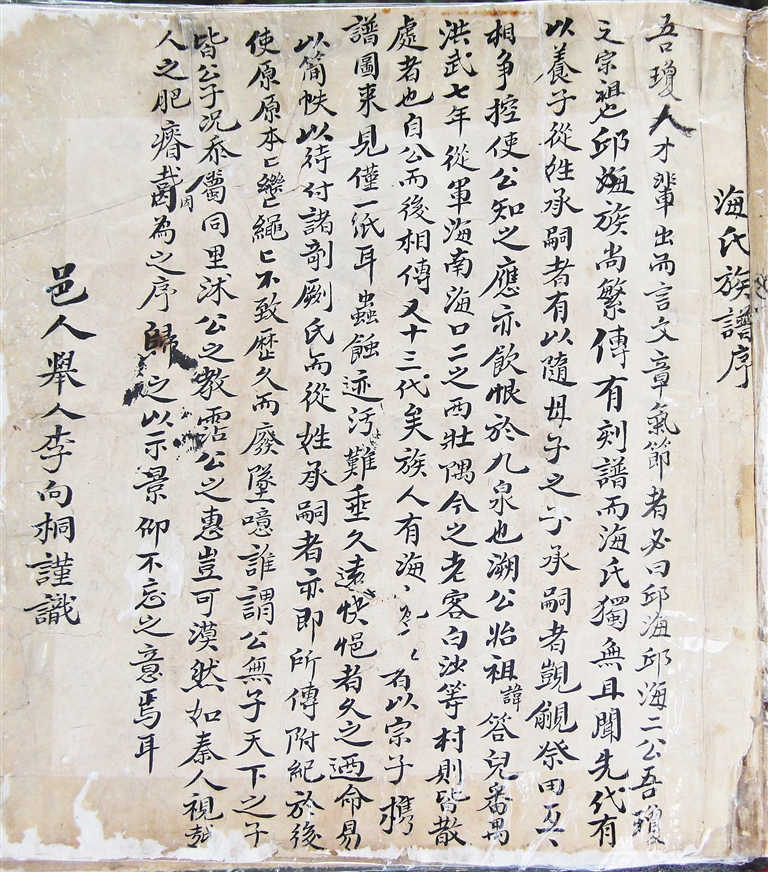 海氏族譜序
吾瓊人才輩出而言文章氣節者必曰邱海邱海二公吾瓊
之宗祖也邱海族尚繁傳有刻譜而海氏獨無且聞先代有
以養子從姓承嗣者有以隨母子之子承嗣者覬覦祭田互
相爭控使公知之應亦飲恨於九泉也溯公始祖諱答兒番禺
洪武七年從軍海南海口二之西壯隅今之老客白沙等村則皆散
處者也自公而後相傳又十三代矣族人有海 者以宗子攜
譜圖來見僅一紙耳蟲蝕迹污難垂久遠怏悒者久之迺命易
以簡帙以待付諸剞劂氏而從姓承嗣者亦即所傳附紀於後
使原原本匕繼匕繩匕不致歷久而廢墜噫誰謂公無子天下之子
皆公子況忝屬同里沐公之教霑公之惠豈可漠然如秦人視越
人之肥瘠哉因為之序歸之以示景仰不忘之意焉耳
邑人舉人李向桐謹識